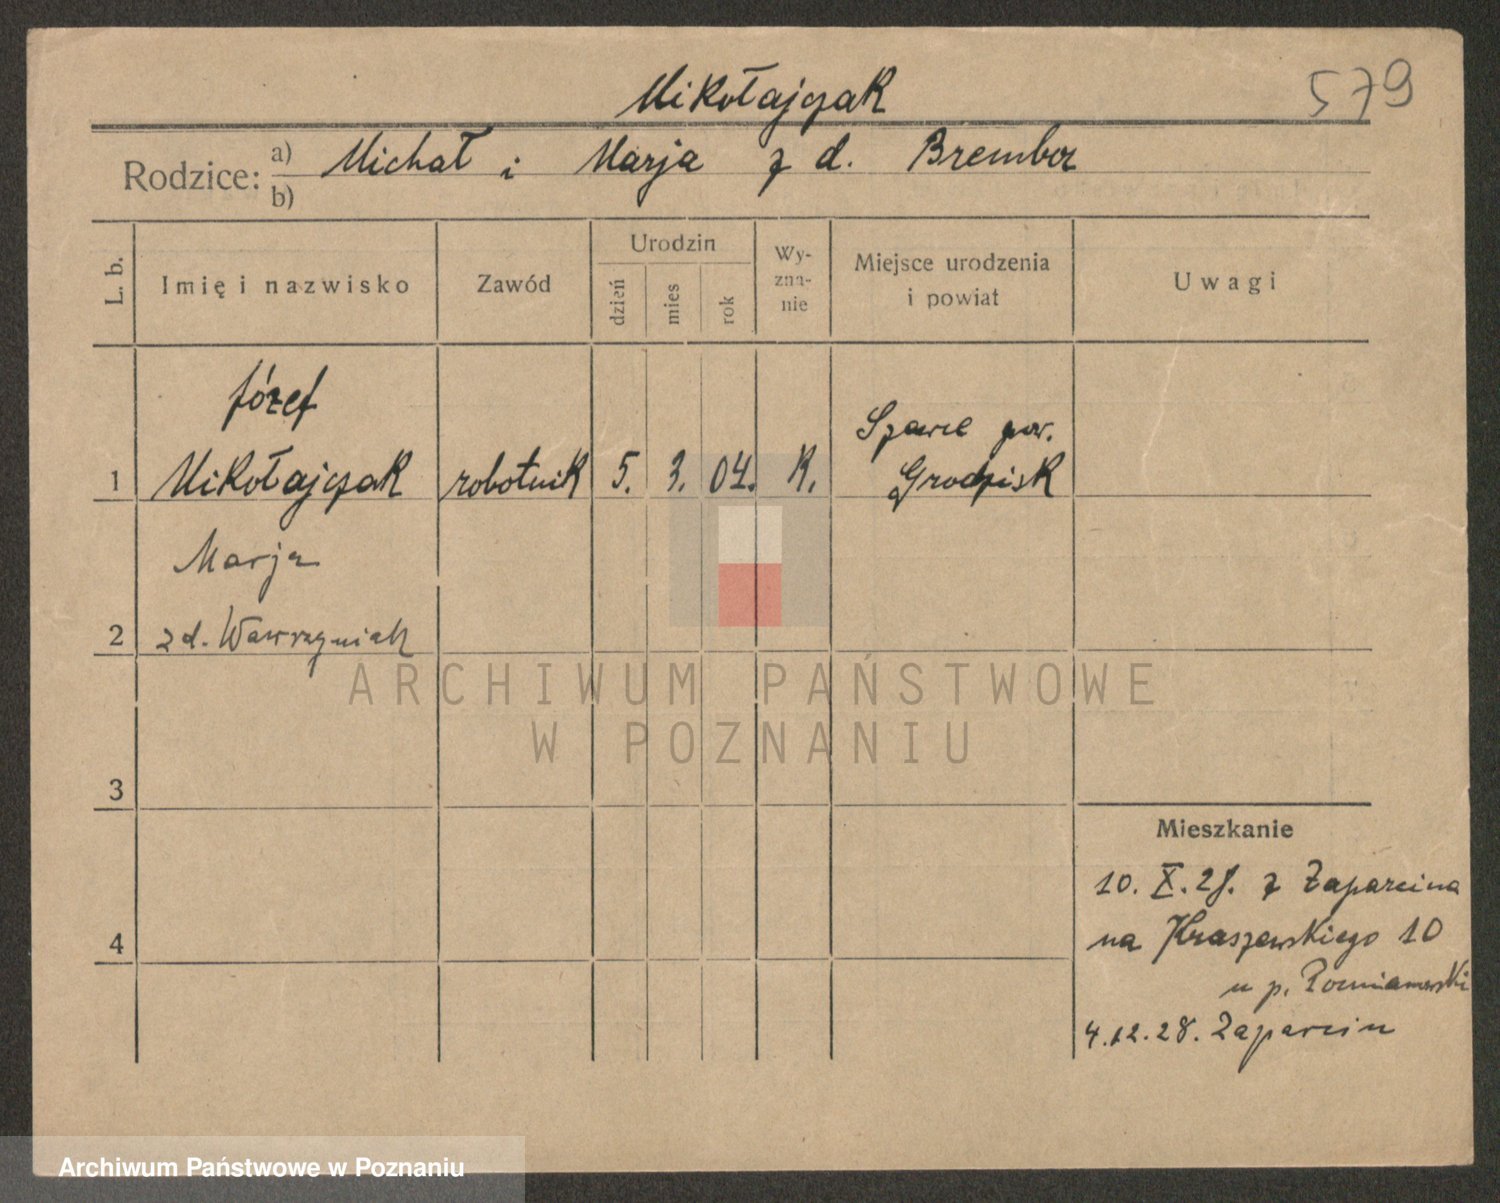 579
Mikołajczak
Rodzice: a) Michał i Marja z d. Brembor
b)
L. b.
Imię i nazwisko
Zawód
Urodzin
dzień
mies
rok
Wy-
zna-
nie
Miejsce urodzenia
i powiat
Uwagi
Józef
Szewce pow.
1 Mikołajczak robotnik 5. 3. 04. K. Grodzisk
Marja
2 z d. Wawrzyniak
ARCHIWUM PAŃSTWOWE
W POZNANIU
3
Mieszkanie
10. X. 28. z Zaparcina
4
na Kraszewskiego 10
u p.
4.12.28. Zaparcin
Archiwum Państwowe w Poznaniu